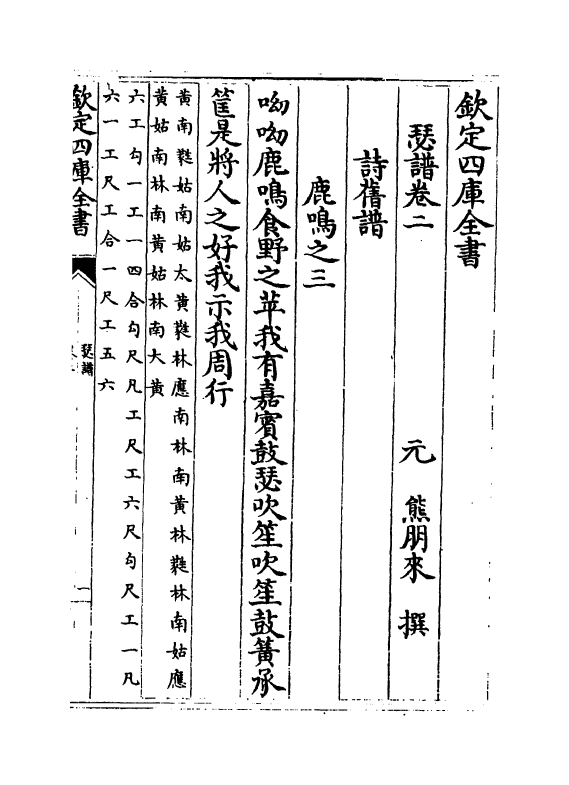 欽定四庫全書
瑟譜卷二　元　熊朋來　撰
詩舊譜
鹿鳴之三
呦呦鹿鳴食野之苹我有嘉賓鼓瑟吹笙吹笙鼓簧承
筐是將人之好我示我周行
黃南蕤姑南姑太黃蕤林應南林南黃林蕤林南姑應
黃姑南林南黃姑林南大黃
六工勾一工一四合勾尺凡工尺工六尺勾尺工一凡
六一工尺工合一尺工五六
欽定四庫全書
瑟譜
一